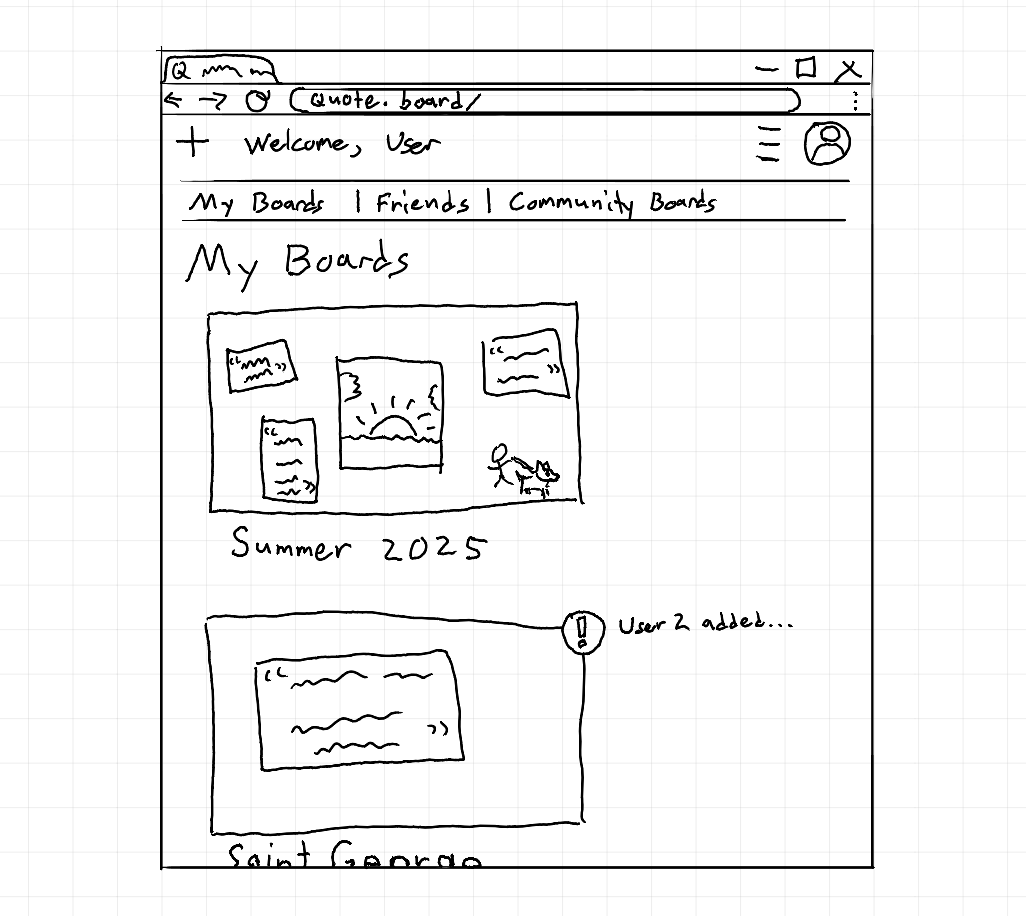 Q
Quote.board/
+ Welcome, User
My Boards | Friends | Community Boards
My Boards
Summer 2025
! User 2 added...
Saint George